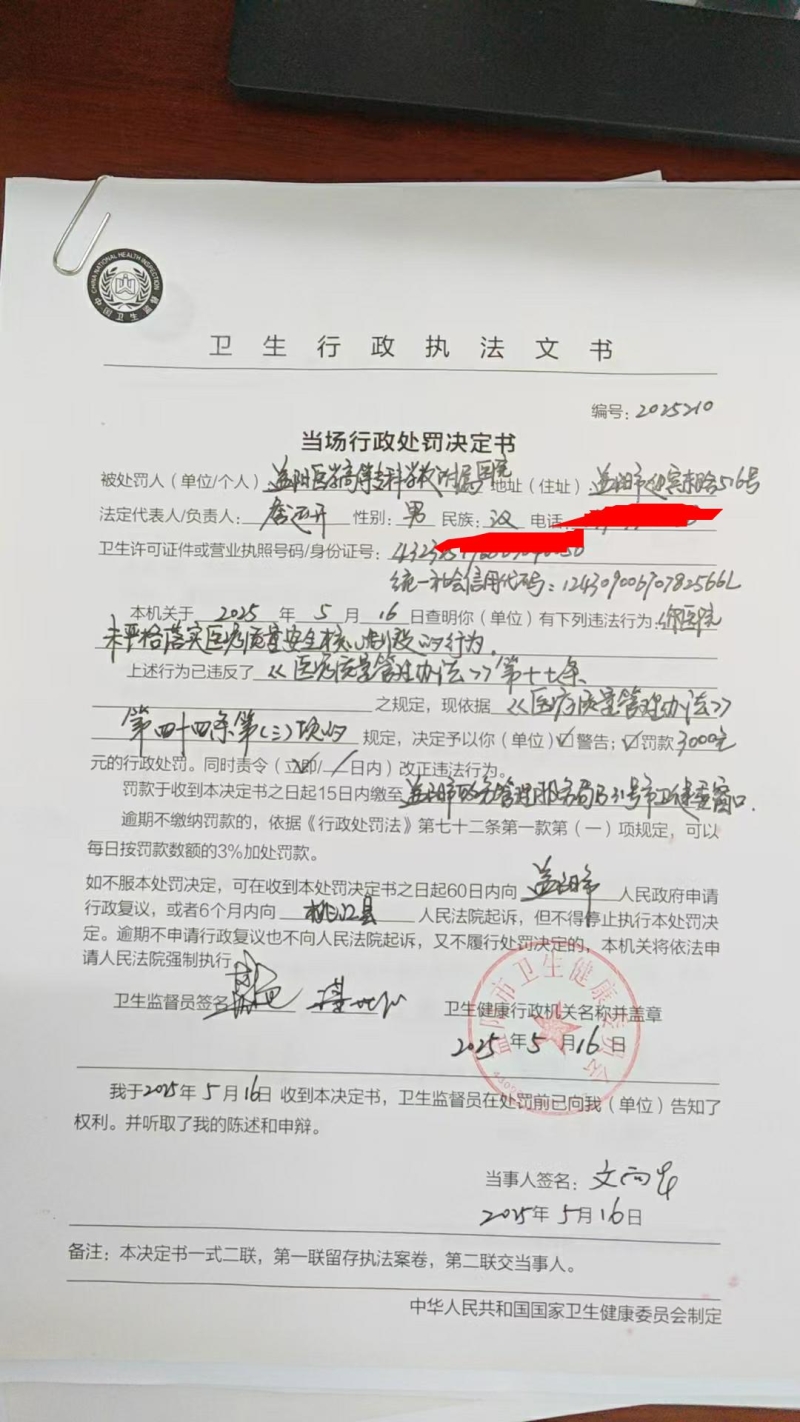 CHINA NATIONAL HEALTH INSPECTION
中国卫生监督
卫生行政执法文书
编号：2025210
当场行政处罚决定书
被处罚人（单位/个人）益阳医学高等专科学校附属医院 地址（住址）益阳市迎宾东路516号
法定代表人/负责人： 性别：男 民族：汉 电话：
卫生许可证件或营业执照号码/身份证号：
统一社会信用代码：12430900670782566L
本机关于 2025 年 5 月 16 日查明你（单位）有下列违法行为：你医院
未严格落实医疗质量安全核心制度的行为。
上述行为已违反了《医疗质量管理办法》第十七条
之规定，现依据《医疗质量管理办法》
第四十四条第（三）项的 规定，决定予以你（单位）☑警告；☑罚款 3000元
元的行政处罚。同时责令（立即/ 日内）改正违法行为。
罚款于收到本决定书之日起15日内缴至益阳市政务管理服务局B31号市卫健委窗口.
逾期不缴纳罚款的，依据《行政处罚法》第七十二条第一款第（一）项规定，可以
每日按罚款数额的3%加处罚款。
如不服本处罚决定，可在收到本处罚决定书之日起60日内向 益阳市 人民政府申请
行政复议，或者6个月内向 桃江县 人民法院起诉，但不得停止执行本处罚决
定。逾期不申请行政复议也不向人民法院起诉，又不履行处罚决定的，本机关将依法申
请人民法院强制执行。
卫生监督员签名
卫生健康行政机关名称并盖章
益阳市卫生健康委员会
2025年5月16日
我于2025年5月16日收到本决定书，卫生监督员在处罚前已向我（单位）告知了
权利。并听取了我的陈述和申辩。
当事人签名：
2025年5月16日
备注：本决定书一式二联，第一联留存执法案卷，第二联交当事人。
中华人民共和国国家卫生健康委员会制定